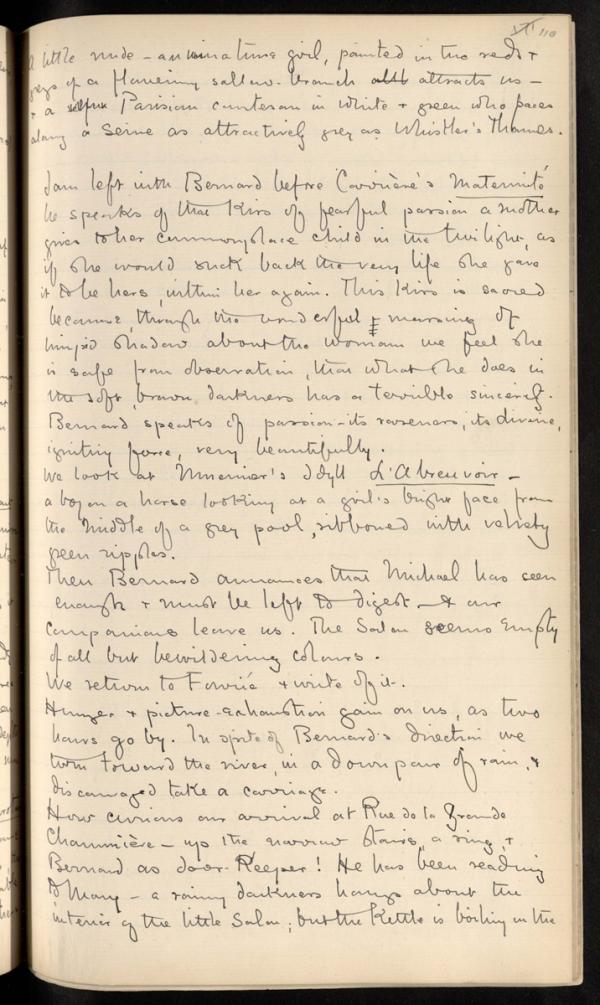 110
A little nude – a miniature girl, painted in the reds +
greys of a flowering sallow-branch attracts us –
+ a Parisian courtesan in white + green who paces
along a Seine as attractively grey as Whistler's Thames.
I am left with Bernard before Carrière's Maternité
he speaks of that kiss of fearful passion a mother
gives to her commonplace child in the twilight, as
if she would suck back the very life she gave
it to be hers, within her again. This kiss is sacred
because, through the wonderful massing of
limpid shadow about the woman we feel she
is safe from observation, that what she does in
the soft, brown darkness has a terrible sincerity.
Bernard speaks of passion – its rareness, its divine,
igniting force, very beautifully.
We look at Idyll L'Abreuvoir –
a boy on a horse looking at a girl's bright face from
the middle of a grey pool, ribboned with velvety
green ripples.
Then Bernard announces that Michael has seen
enough + must be left to digest – + our
companions leave us. The Salon seems empty
of all but bewildering colours.
We return to + write of it.
Hunger + picture-exhaustion gain on us, as two
hours go by. In spite of Bernard's direction we
turn toward the river, in a downpour of rain, +
discouraged take a carriage.
How curious our arrival at Rue de la Grande
Chaumière – up the narrow stairs, a ring, +
Bernard as door-keeper! He has been reading
to Mary – a rainy darkness hangs about the
interior of the little Salon; but the kettle is boiling in the